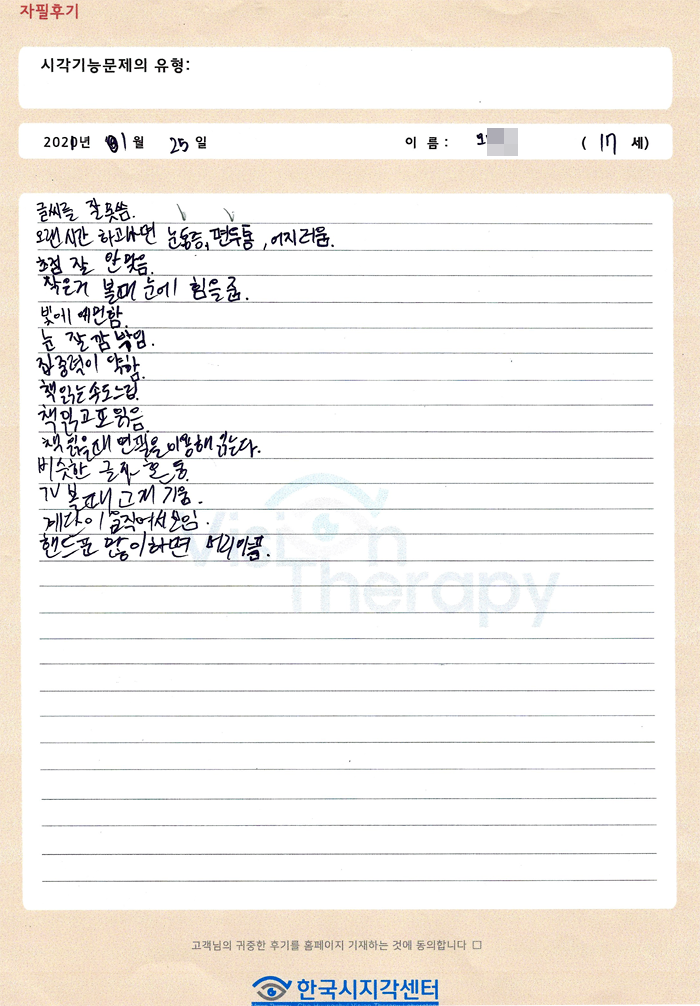 자필후기
시각기능문제의 유형:
2021년 01월 25일 이 름 : ( 17 세)
글씨를 잘 못씀.
오랜시간 하고나면 눈통증, 편두통, 어지러움.
초점 잘 안맞음.
작은거 볼때 눈에 힘을줌.
빛에 예민함.
눈 잘 깜박임.
집중력이 약함.
책읽는속도느림.
책읽고또읽음.
책 읽을때 연필을이용해 읽는다.
비슷한 글자 혼동.
TV 볼때 고개 기움.
계단이 움직여서보임.
핸드폰 많이하면 머리아픔.
Vision
Therapy
고객님의 귀중한 후기를 홈페이지 기재하는 것에 동의합니다 □
한국시지각센터